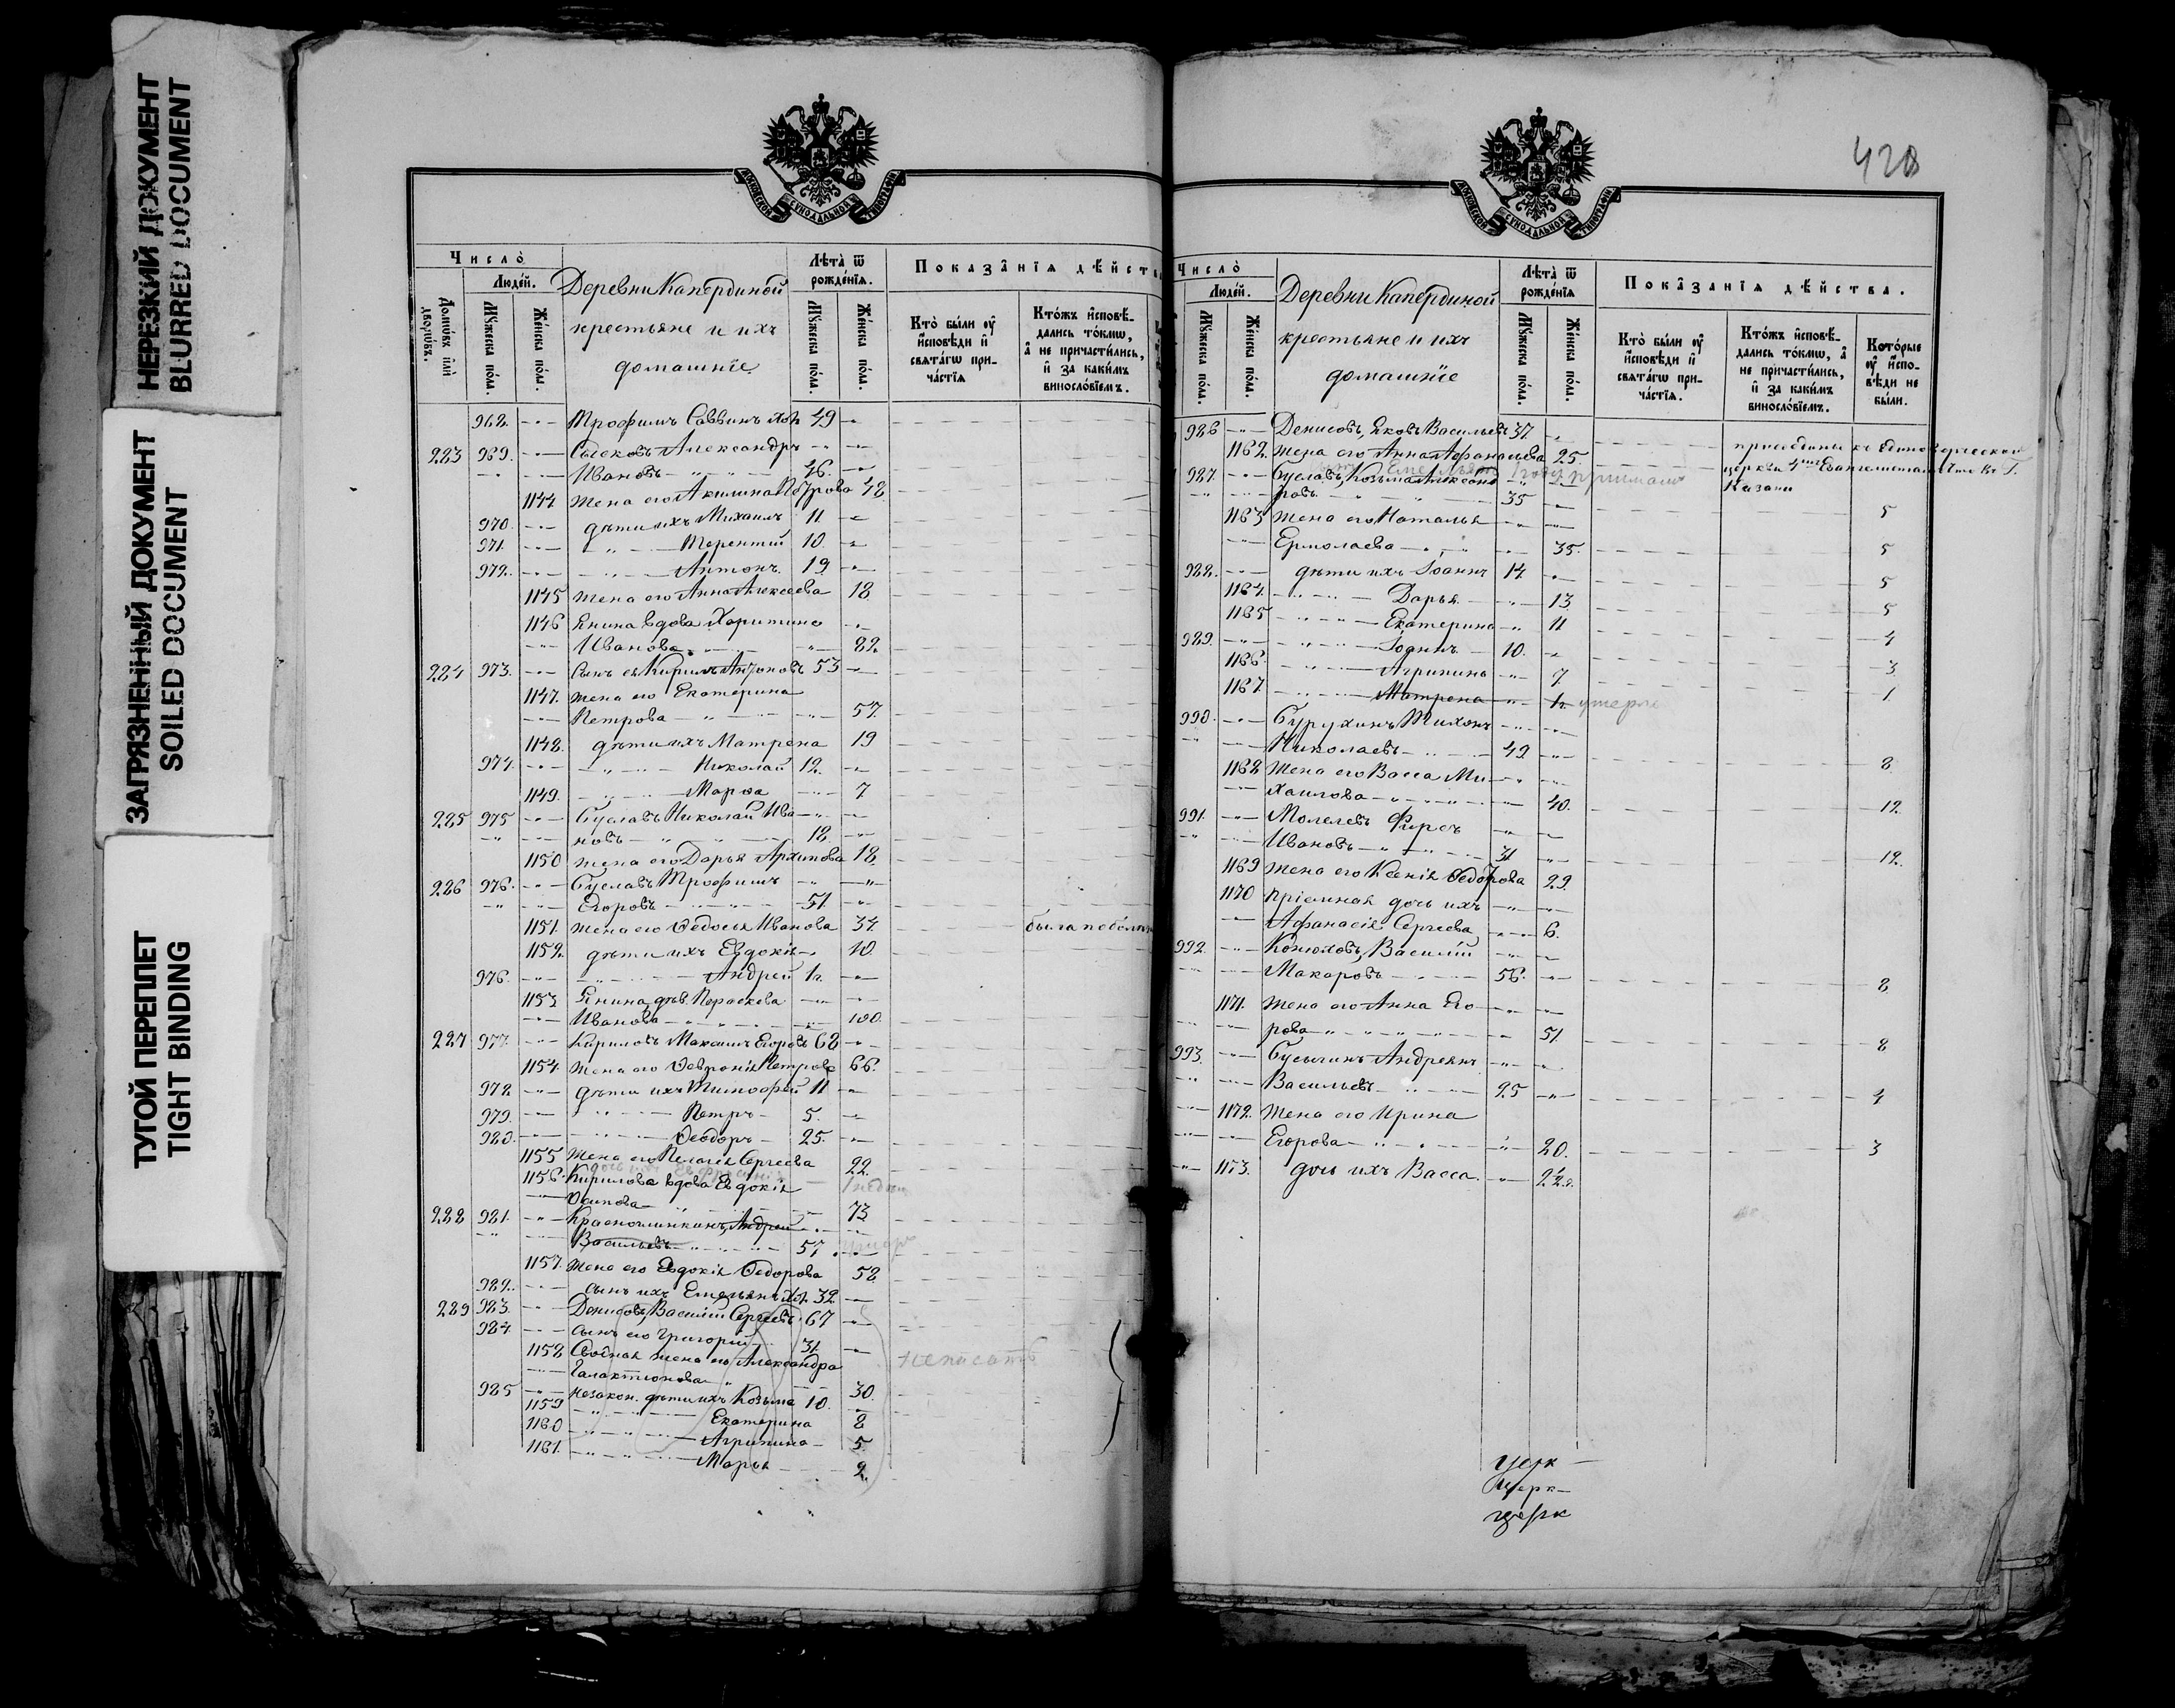 НЕРЕЗКИЙ ДОКУМЕНТ
BLURRED DOCUMENT
ЗАГРЯЗНЕННЫЙ ДОКУМЕНТ
SOILED DOCUMENT
ТУГОЙ ПЕРЕПЛЕТ
TIGHT BINDING
МОСКОВСКОЙ СУНОДАЛЬНОЙ ТИПОГРАФІИ
Число̀
Людей.
Домѡвъ и҆лѝ дворѡвъ.
Мꙋ́жеска по́ла.
Же́нска по́ла.
Деревни Капердиной
крестьяне и ихъ
домашніе
Лѣта̀ ѿ рожде́нїѧ.
Мꙋ́жеска по́ла.
Же́нска по́ла.
Показа̂нїѧ дѣ́йств
Кто̀ бы́ли ᲂу҆ и҆сповѣ́ди и҆ свѧта́гѡ прича́стїѧ
Кто́жъ и҆сповѣ́дались то́кмѡ, а҆ не причасти́лись, и҆ за каки́мъ винослові́емъ.
968. Трофимъ Саввинъ хол 49
223 969. Сысковъ Александръ
Ивановъ 46
1144 жена его Акилина Петрова 48
970. дѣти ихъ Михаилъ 11
971. Терентій 10.
972. Антонъ. 19
1145 жена его Анна Алексеева 18
1146 Янина вдова Харитина
Иванова 82.
224 973. сынъ ея Кирилъ Антоновъ 53
1147. жена его Екатерина
Петрова 57.
1148. дѣти ихъ Матрена 19
974. Николай 12.
1149. Марѳа 7
225 975 Буславъ Николай Ива
новъ 18
1150 жена его Дарья Архипова 18.
226 976. Буславъ Трофимъ
Егоровъ 51.
1151. жена его Ѳедосья Иванова 34. была по болѣзн
1152. дѣти ихъ Евдокія 10.
976. Андрей 1г.
1153 Янина дѣв. Параскева
Иванова 100.
227 977. Кириловъ Максимъ Егоровъ 68
1154. жена его Ѳевронія Петрова 66.
978 дѣти ихъ Тимофей 11
979. Петръ 5.
980. Ѳеодоръ 25.
1155 жена его Пелагея Сергеева 22.
1156. Кирилова вдова Евдокія
Осипова 73
228 981. Красноглинкинъ, Андрей
Васильевъ 57. умеръ
1157. жена его Евдокія Ѳедорова 58.
982. сынъ ихъ Емельянъ хол. 32
229 983. Денисовъ, Василій Сергеевъ 67
984. сынъ его Григорій 31.
1158 Сводная жена его Александра
Галактіонова 30.
985 незакон. дѣти ихъ Козьма 10.
1159 Екатерина 8
1160 Агрипина 5.
1161. Марья 2.
не писать
428
МОСКОВСКОЙ СУНОДАЛЬНОЙ ТИПОГРАФІИ
Число̀
Людей.
Мꙋ́жеска по́ла.
Же́нска по́ла.
Деревни Капердиной
крестьяне и ихъ
домашніе
Лѣта̀ ѿ рожде́нїѧ
Мꙋ́жеска по́ла.
Же́нска по́ла.
Показа̂нїѧ дѣ́йства.
Кто̀ бы́ли ᲂу҆ и҆сповѣ́ди и҆ свѧта́гѡ прича́стїѧ.
Кто́жъ и҆сповѣ́дались то́кмѡ, а҆ не причасти́лись, и҆ за каки́мъ винослові́емъ.
Кото́рые ᲂу҆ и҆сповѣ́ди не бы́ли.
986 Денисовъ, Яковъ Васильевъ 37.
1162. жена его Анна Афанасьева 25.
присоедины къ единоверческой
церкви 4хъ Евангелистовъ въ Г.
Казани
987. Буславъ, Козьма Александ
ровъ 35 5
1163 жена его Наталья
Ермолаева 35. 5
988. дѣти ихъ Іоаннъ 14. 5
1164. Дарья 13 5
1165 Екатерина 11 4
989. Іоаннъ 10. 3
1166. Агрипина 7 1
1167. Матрена 1г. умерла
990. Бурухинъ Тихонъ
Николаевъ 49 8
1168 жена его Васса Ми
хаилова 40. 12.
991. Молелевъ Фирсъ
Ивановъ 31 12.
1169 жена его Ксенія Ѳедорова 29.
1170 пріемная дочь ихъ
Афанасія Сергеева 6.
992. Конюховъ, Василій
Макаровъ 56. 8
1171. жена его Анна Его
рова 51. 8
993. Бусыгинъ Андреянъ
Васильевъ 25 4
1172. жена его Ирина
Егорова 20. 3
1173. дочь ихъ Васса.
церк
церк
церк